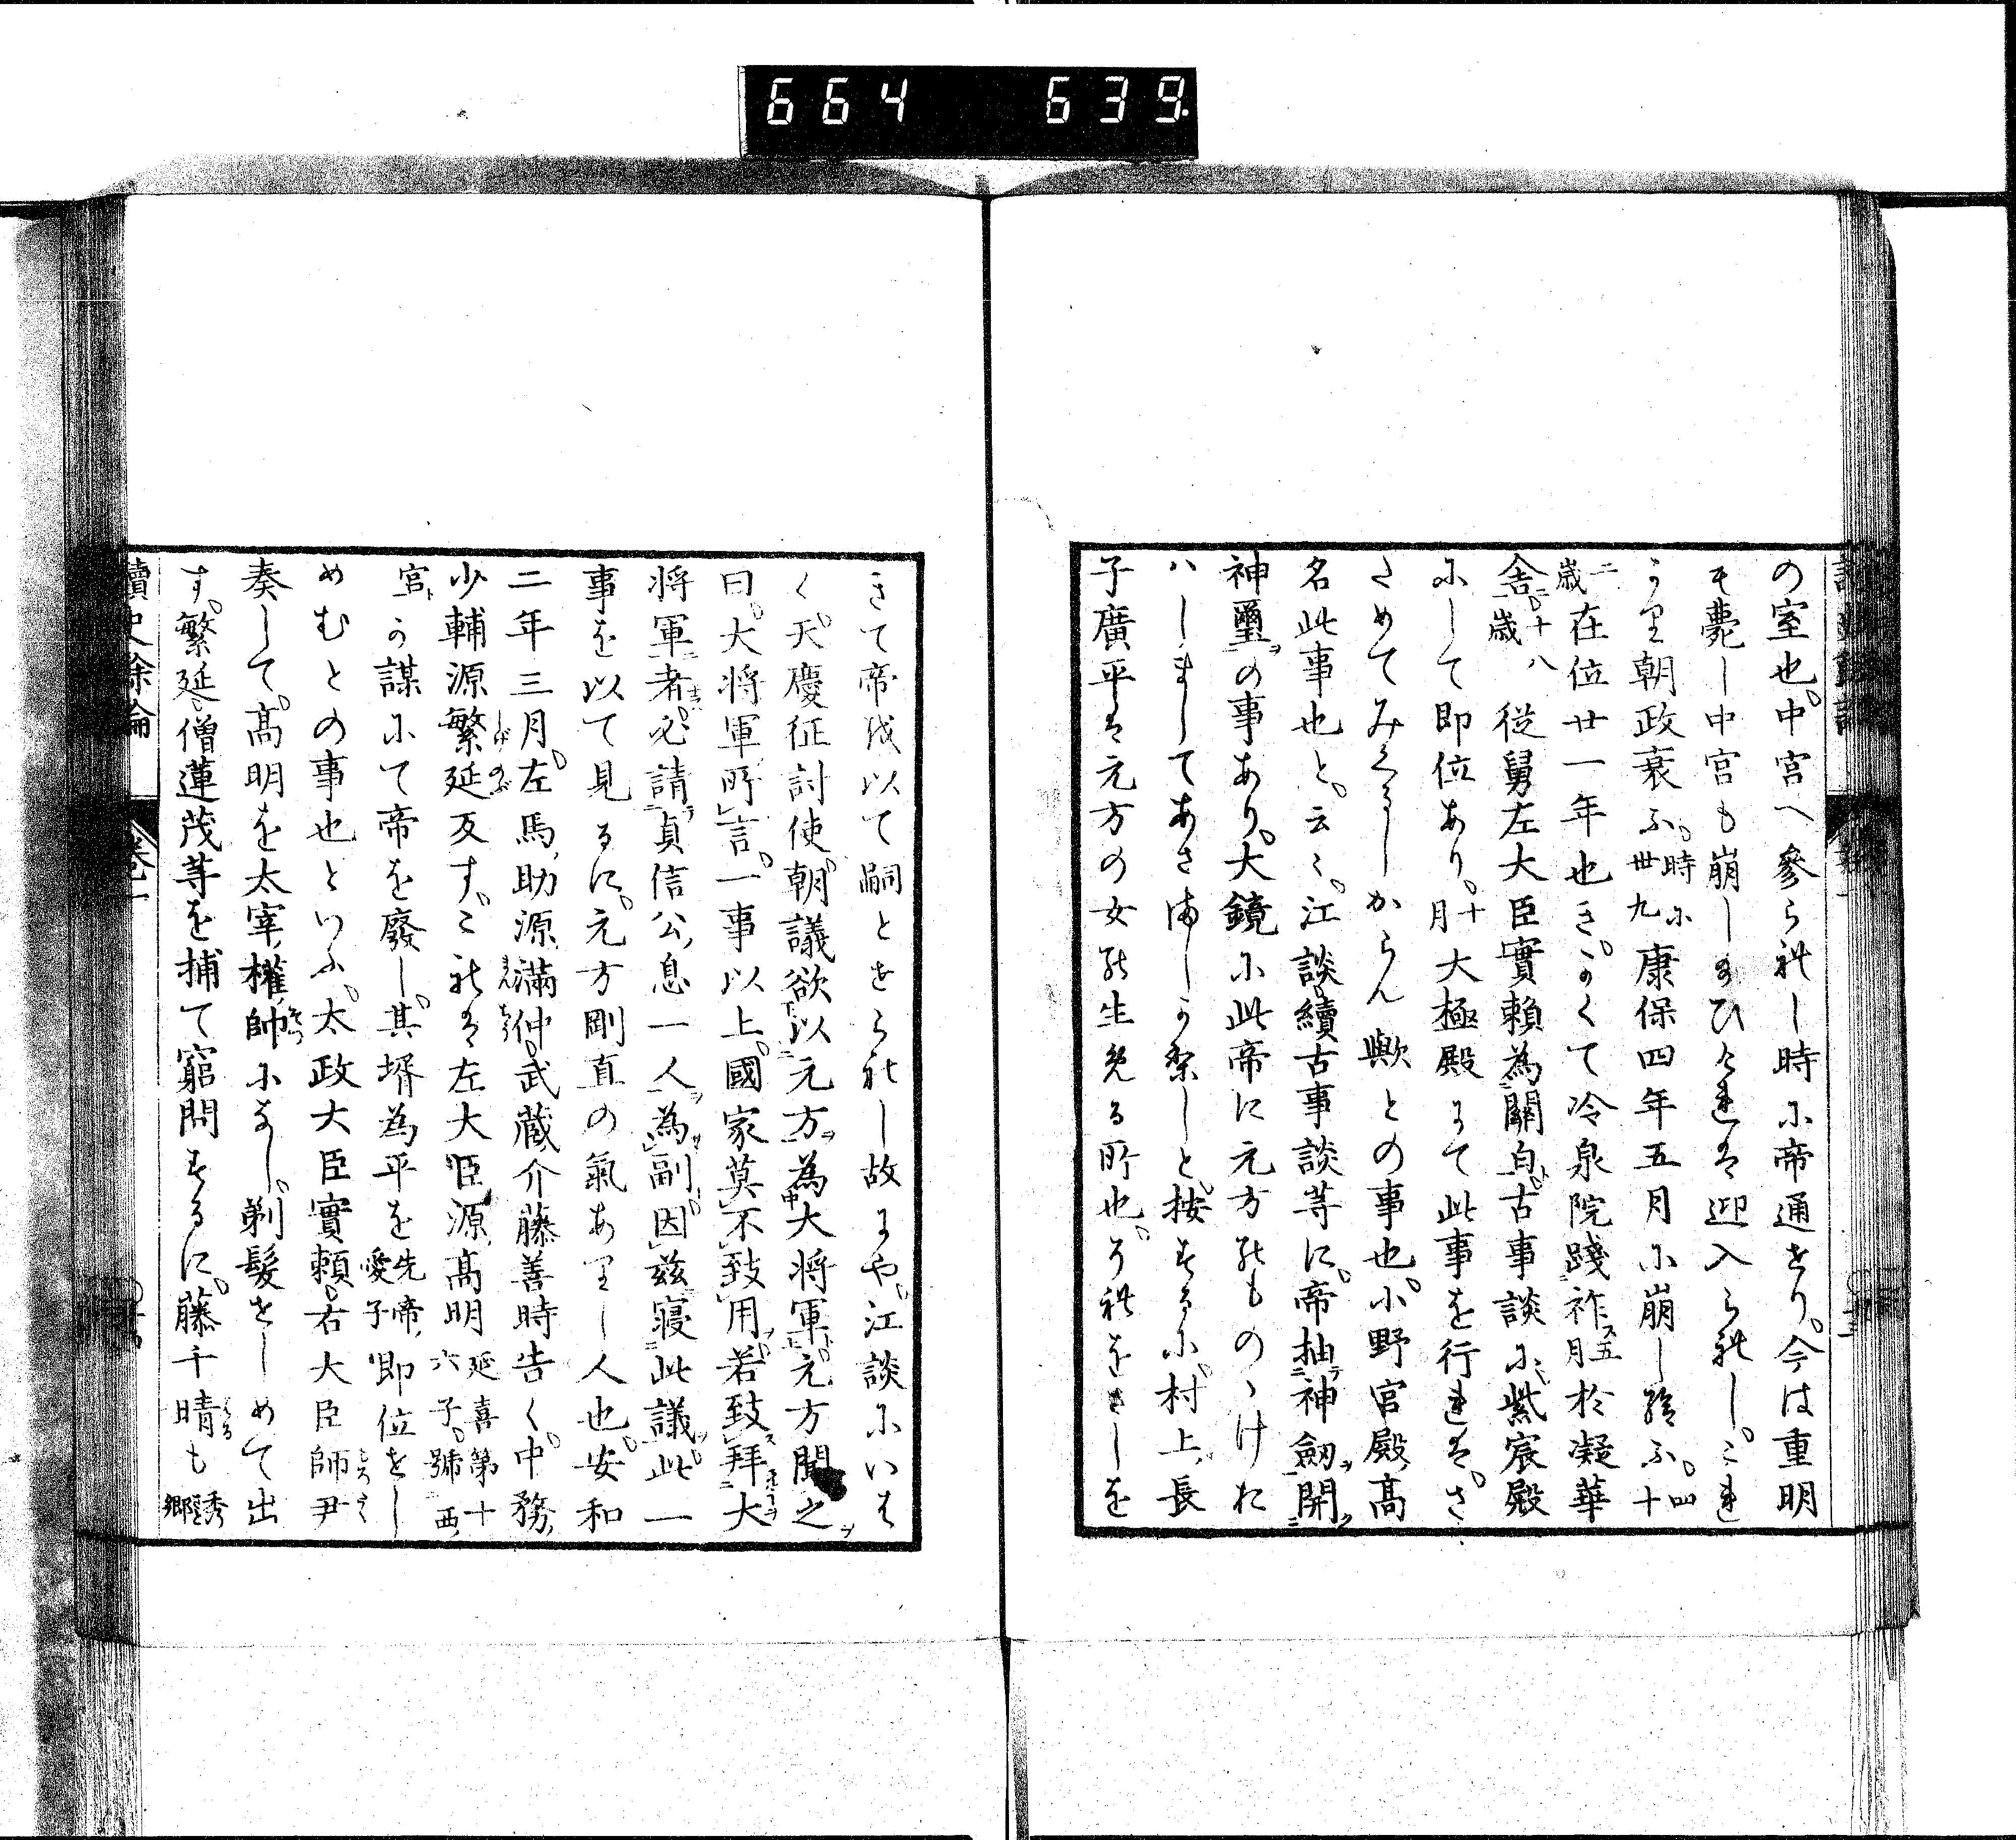 664 639
の室也。中宮へ參られし時に帝通せり。今は重明
も薨し中宮も崩し給ひければ迎入られし。これ
より朝政衰ふ。時に卅九康保四年五月に崩し給ふ。四十
二歳在位廿一年也き。かくて冷泉院踐祚五月於凝華
舍。十八歳從舅左大臣實賴為關白。古事談に紫宸殿
にして即位あり。十月大極殿にて此事を行れは。さ
ためてみくるしからん歟との事也。小野宮殿高
名此事也と。云々。江談續古事談等に。帝抽神劔開
神璽の事あり。大鏡に此帝に元方のものゝけお
ハしましてあさましかりしと。按するに。村上長
子廣平は元方の女の生める所也。それをさしを
きて帝を以て嗣とせられし故にや。江談にいは
く。天慶征討使朝議欲以元方為大将軍。元方聞之
曰。大将軍所言。一事以上。國家莫不致用。若致拜大
将軍者。必請貞信公息一人為副。因茲寝此議。此一
事を以て見るに。元方剛直の氣ありし人也。安和
二年三月。左馬助源滿仲。武藏介藤善時告く。中務
少輔源繁延反す。これは左大臣源高明延喜第十六子。號西
宮か謀にて帝を廢し。其壻為平を先帝愛子即位せし
めむとの事也といふ。太政大臣實賴。右大臣師尹
奏して。高明を太宰權帥になし。剃髮せしめて出
す。繁延。僧蓮茂等を捕て窮問するに。藤千晴も秀郷
讀史餘論 卷一